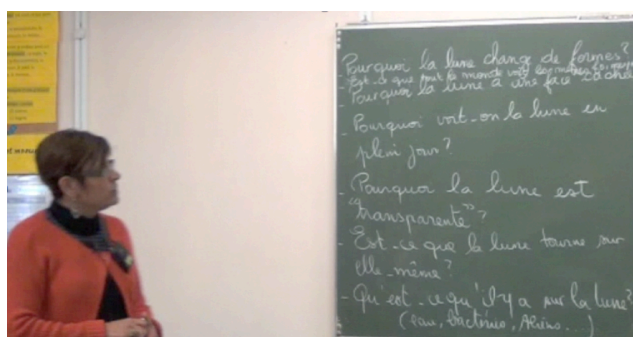 Pourquoi la lune change de formes?
- Est-ce que tout le monde voit les mêmes
- Pourquoi la lune a une face
- Pourquoi voit-on la lune en
plein jour?
- Pourquoi la lune est
"transparente"?
- Est-ce que la lune tourne sur
elle-même?
- Qu'est-ce qu'il y a sur la lune?
(eau, bactéries, Aliens...)